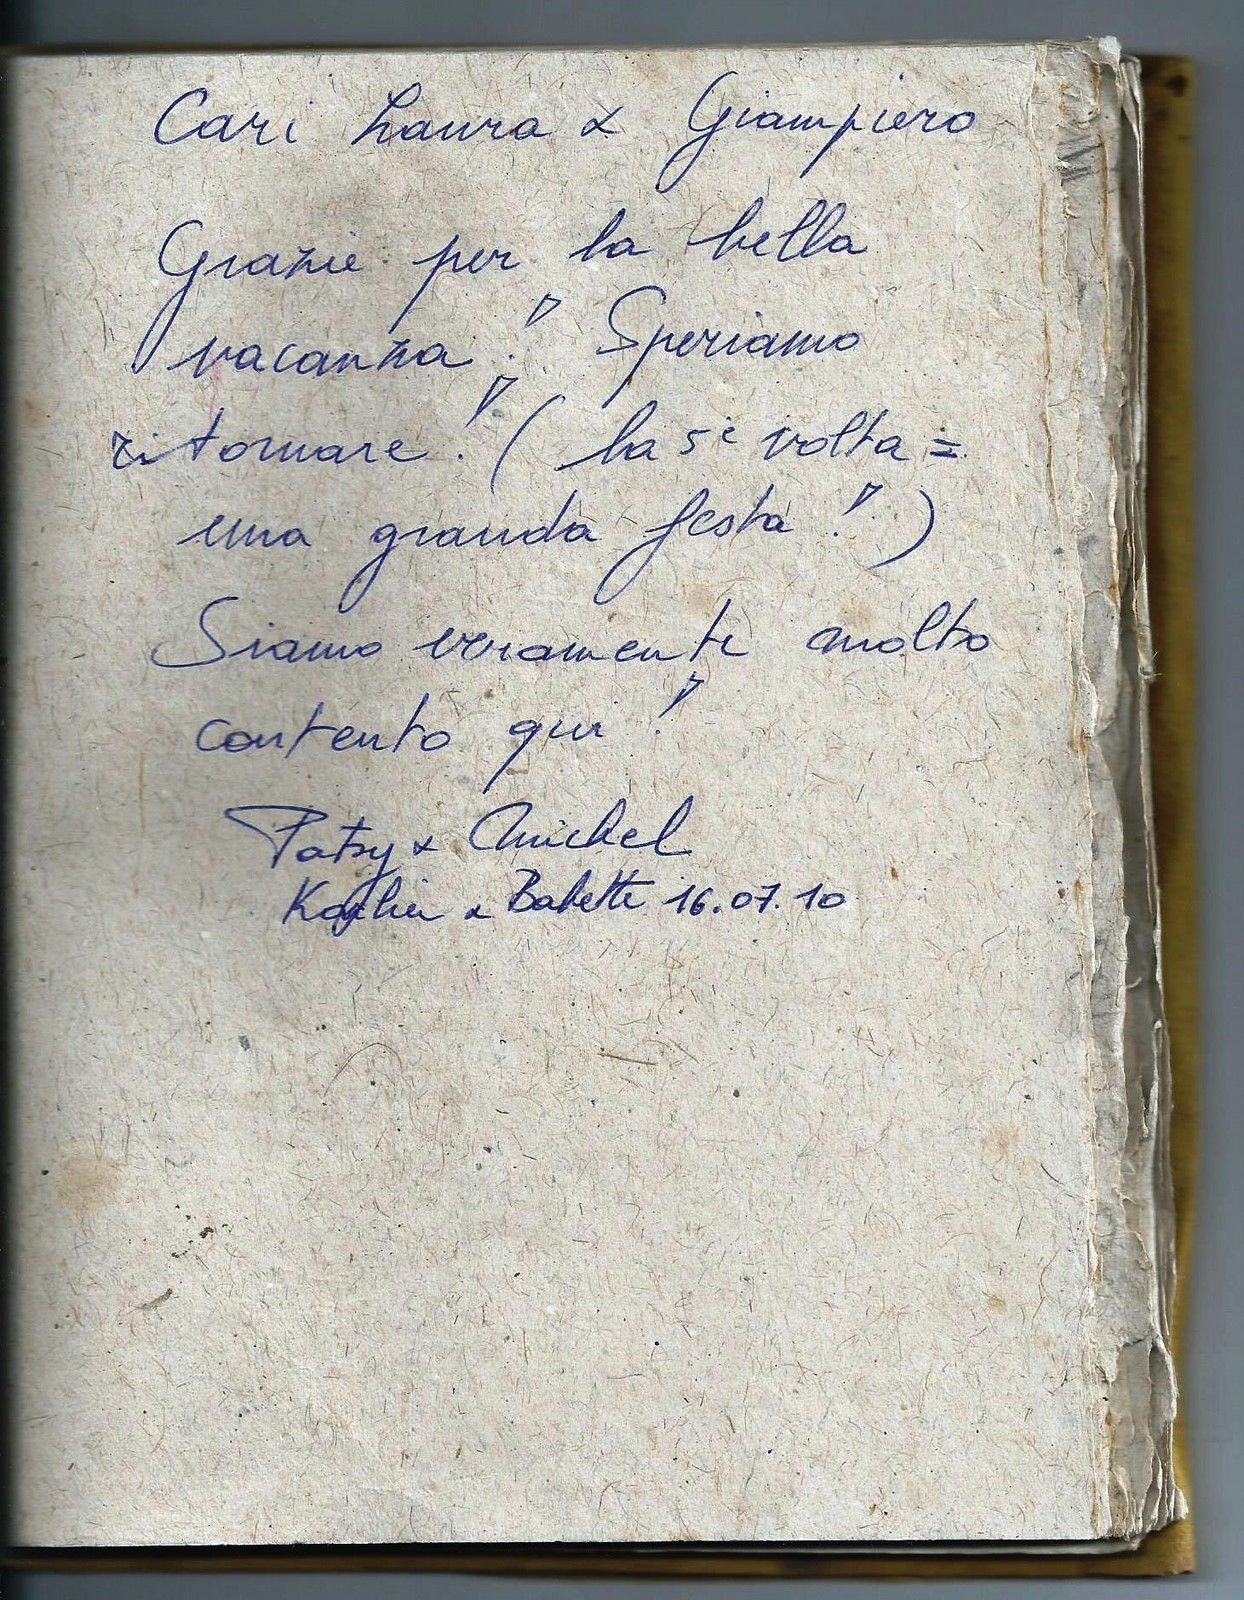 Cari Laura & Giampiero
Grazie per la bella
vacanza! Speriamo
ritornare! (la 5e volta =
una granda festa!)
Siamo veramente molto
contento qui!
Patsy & Michel
& Babette 16.07.10